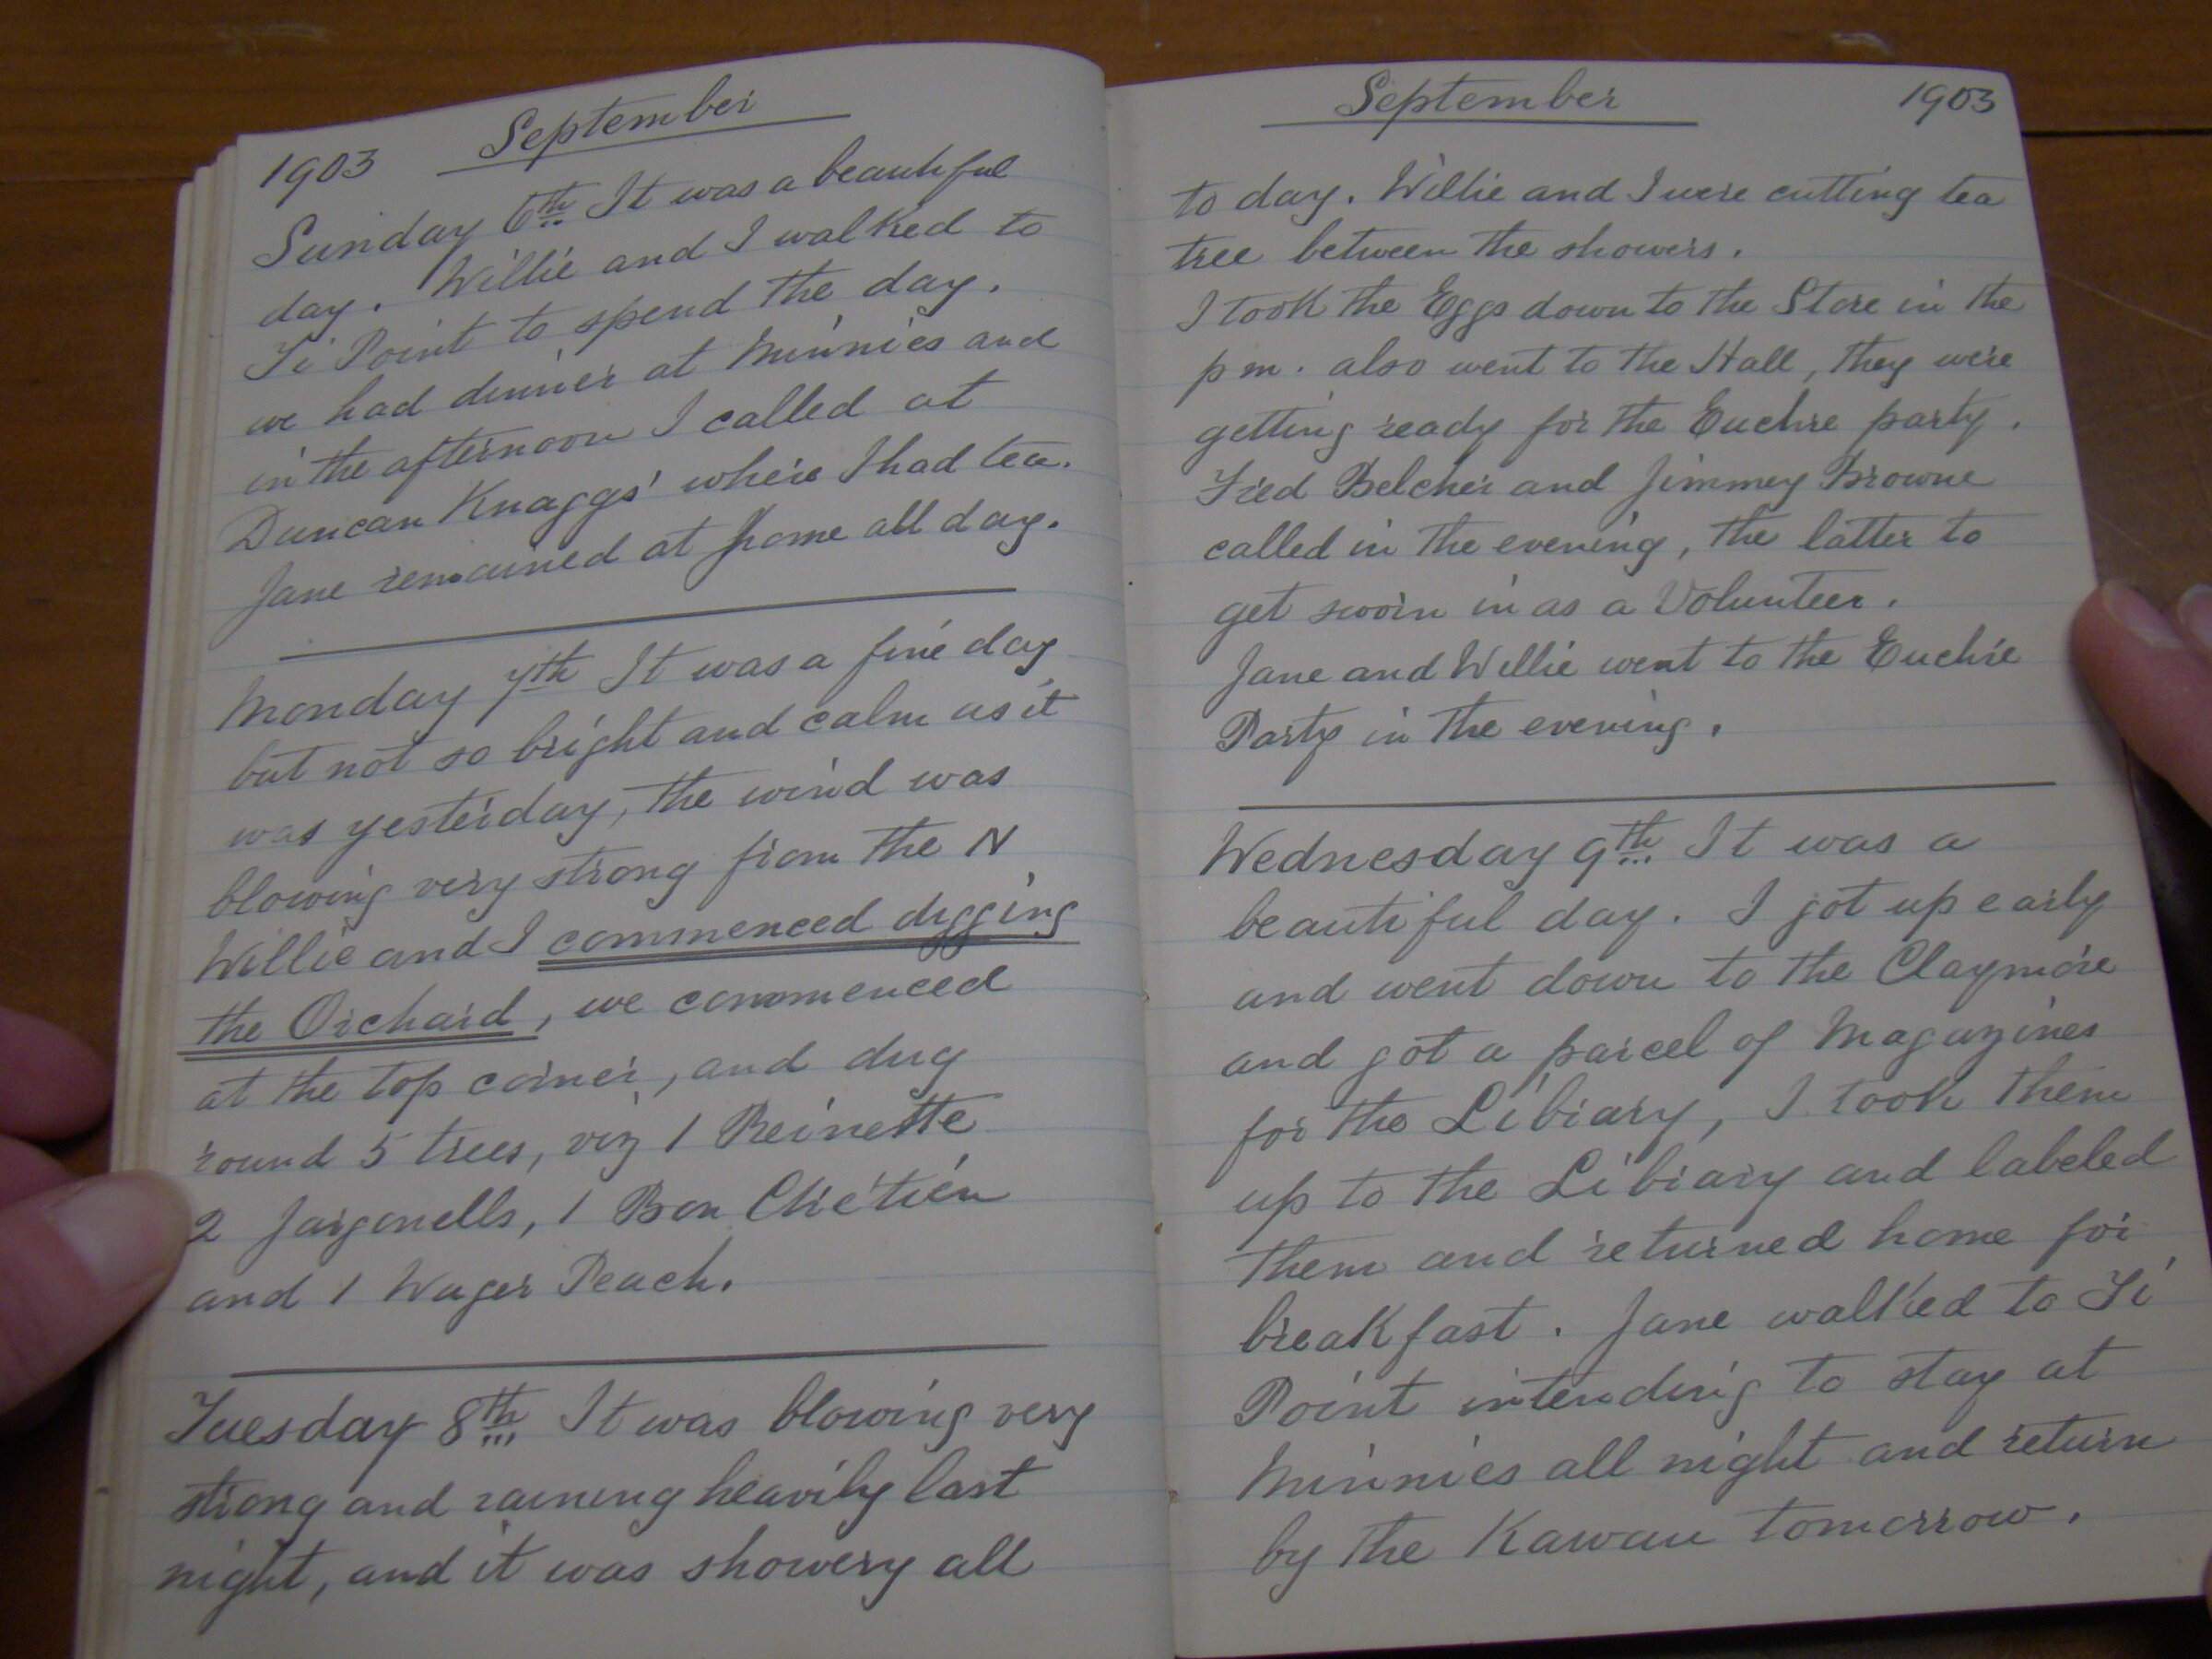 1903 September
Sunday 6th It was a beautiful
day. Willie and I walked to
Ti Point to spend the day.
we had dinner at Minnies and
in the afternoon I called at
Duncan Knaggs' where I had tea.
Jane remained at home all day.
Monday 7th It was a fine day
but not so bright and calm as it
was yesterday, the wind was
blowing very strong from the N
Willie and I commenced digging
the Orchard, we commenced
at the top corner, and dug
round 5 trees, viz 1 Reinette
2 Jargonells, 1 Bon Chrétien
and 1 Wager Peach.
Tuesday 8th It was blowing very
strong and raining heavily last
night, and it was showery all
September 1903
to day. Willie and I were cutting tea
tree between the showers.
I took the Eggs down to the Store in the
pm. also went to the Hall, they were
getting ready for the Euchre party.
Fred Belcher and Jimmey Browne
called in the evening, the latter to
get sworn in as a Volunteer.
Jane and Willie went to the Euchre
Party in the evening.
Wednesday 9th It was a
beautiful day. I got up early
and went down to the Claymore
and got a parcel of Magazines
for the Library, I took them
up to the Library and labeled
them and returned home for
breakfast. Jane walked to Ti
Point intending to stay at
Minnies all night and return
by the Kawau tomorrow.